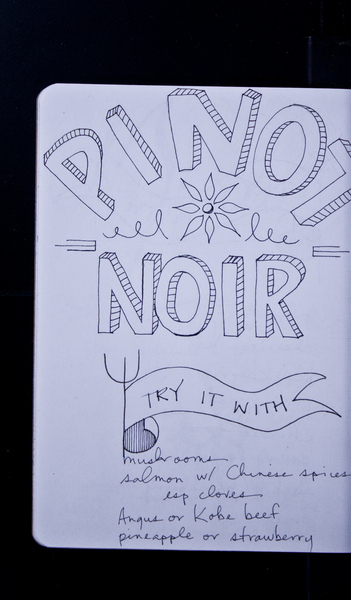 PINOT
NOIR
TRY IT WITH
mushrooms
salmon w/ Chinese spices
esp cloves
Angus or Kobe beef
pineapple or strawberry